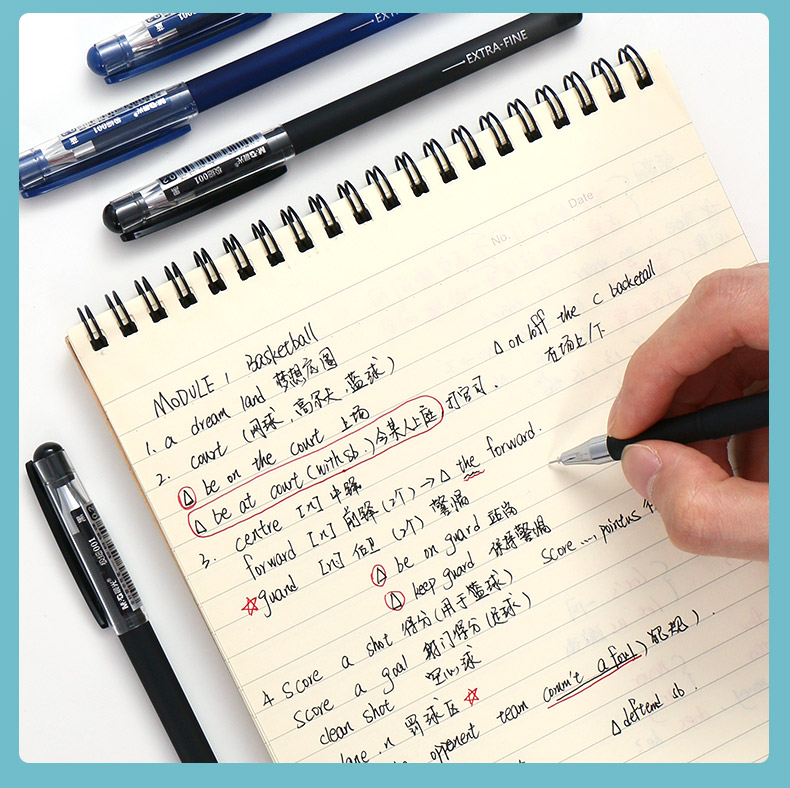 EXTRA-FINE
M&G晨光®
001
M&G晨光
001
黑
No.
Date
MODULE 1 Basketball
1. a dream land 梦想庄园
2. court (网球, 高尔夫, 篮球)
△ on/off the c backetall
在场上/下
△ be on the court 上场
△ be at court (with sb.) 令某人上庭 打官司.
3. centre [n] 中锋
forward [n] 前锋 (2个) → △ the forward.
☆guand [n] 后卫 (2个) 警惕
△ be on guard 站岗
△ keep guard 保持警惕
score ..., pointus
4 Score a shot 得分 (用于篮球)
Score a goal 射门得分 (足球)
clean shot 空心球
lane .n 罚球区 ☆
opponent team commit a foul) 犯规).
△ deftend sb.
001
M&G晨光